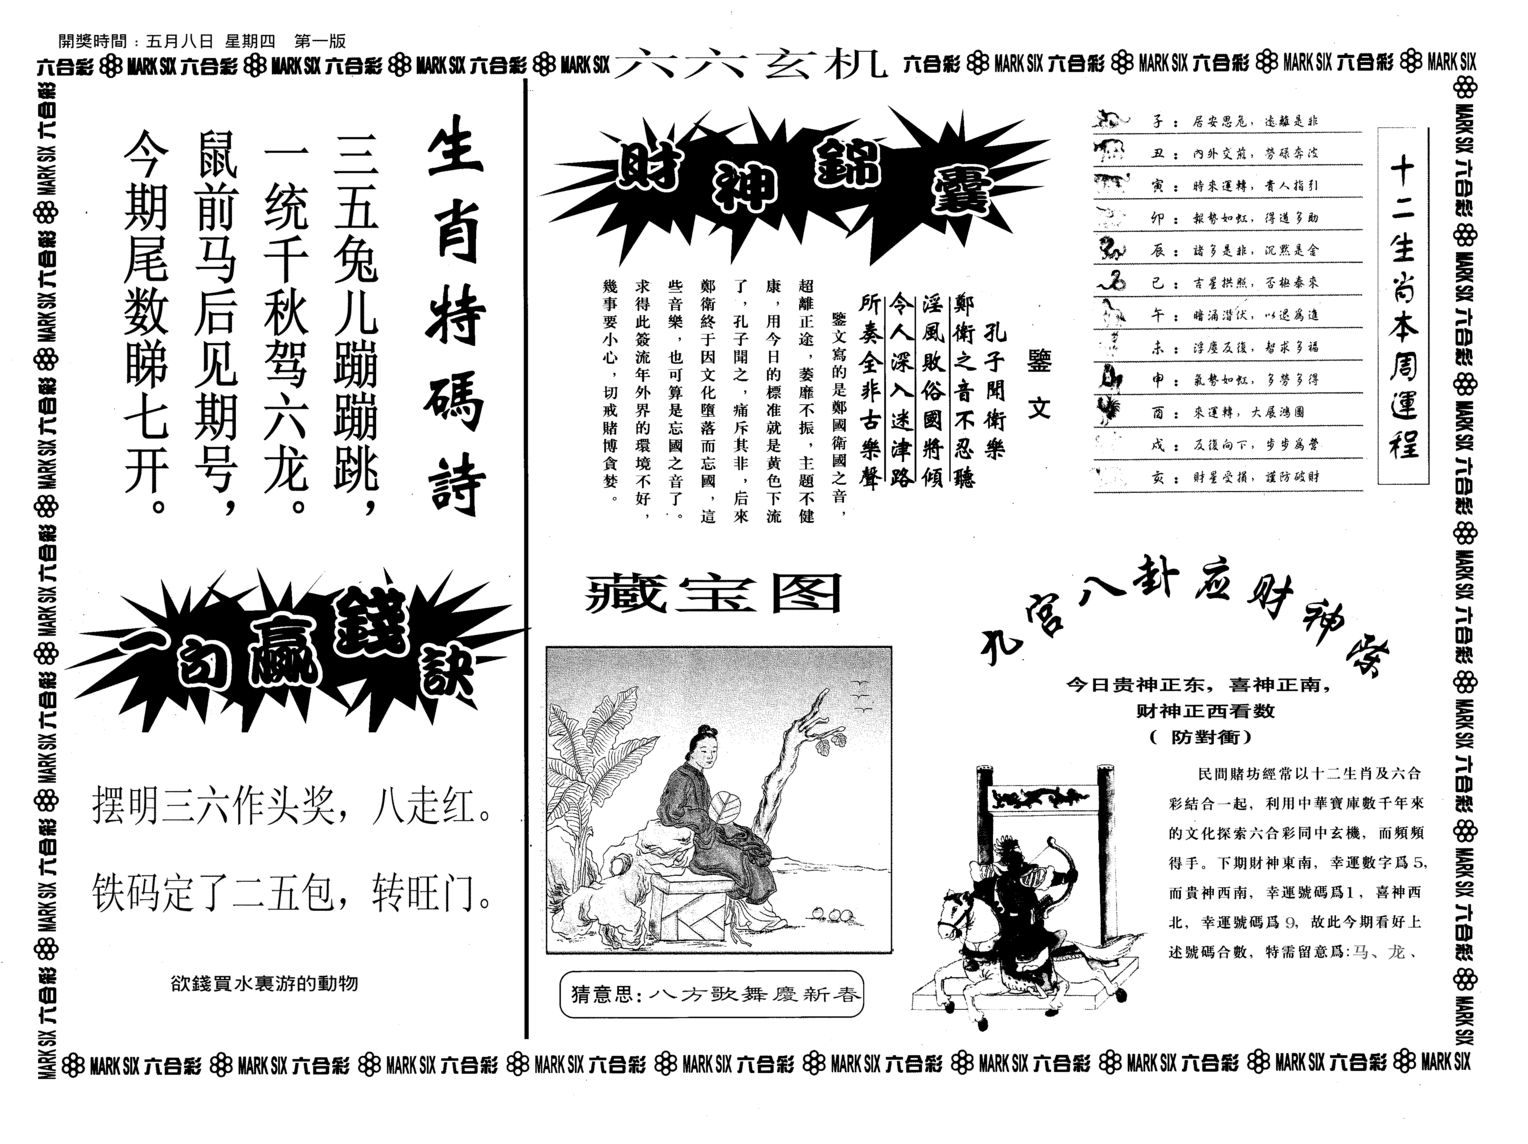 開獎時間：五月八日 星期四 第一版
六合彩 MARK SIX 六合彩 MARK SIX 六合彩 MARK SIX 六合彩 MARK SIX 六六玄机 六合彩 MARK SIX 六合彩 MARK SIX 六合彩 MARK SIX 六合彩 MARK SIX
生肖特碼詩
三五兔儿蹦蹦跳，
一统千秋驾六龙。
鼠前马后见期号，
今期尾数睇七开。
一句贏錢訣
摆明三六作头奖，八走红。
铁码定了二五包，转旺门。
欲錢買水裏游的動物
財神錦囊
鑒文
孔子聞衛樂
鄭衛之音不忍聽
淫風敗俗國將傾
令人深入迷津路
所奏全非古樂聲
鑒文寫的是鄭國衛國之音，
超離正途，萎靡不振，主題不健
康，用今日的標准就是黄色下流
了，孔子聞之，痛斥其非，后來
鄭衛終于因文化墮落而忘國，這
些音樂，也可算是忘國之音了。
求得此簽流年外界的環境不好，
幾事要小心，切戒賭博貪婪。
十二生肖本周運程
子：居安思危，遠離是非
丑：内外交煎，勞碌奔波
寅：時來運轉，貴人指引
卯：報勢如虹，得道多助
辰：諸多是非，沉默是金
己：吉星拱照，否極泰來
午：暗涌潜伏，以退爲進
未：浮塵反復，智求多福
申：氣勢如虹，多勞多得
酉：來運轉，大展鴻圖
戌：反復向下，步步爲營
亥：財星受損，謹防破財
藏宝图
猜意思：八方歌舞慶新春
孔宫八卦应财神
今日贵神正东，喜神正南，
财神正西看数
（防對衝）
民間賭坊經常以十二生肖及六合
彩結合一起，利用中華寶庫數千年來
的文化探索六合彩同中玄機，而頻頻
得手。下期財神東南，幸運數字爲5，
而貴神西南，幸運號碼爲1，喜神西
北，幸運號碼爲9，故此今期看好上
述號碼合數，特需留意爲：马、龙、
MARK SIX 六合彩 MARK SIX 六合彩 MARK SIX 六合彩 MARK SIX 六合彩 MARK SIX 六合彩 MARK SIX 六合彩 MARK SIX 六合彩 MARK SIX 六合彩 MARK SIX 六合彩 MARK SIX